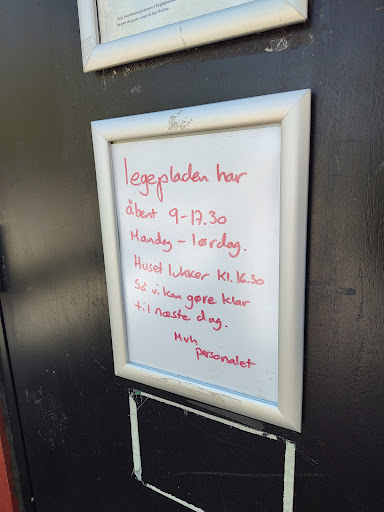 legepladen har
åbent 9-17.30
Mandag - lørdag.
Huset lukker kl. 16.30
Så vi kan gøre klar
til næste dag.
Mvh
personalet